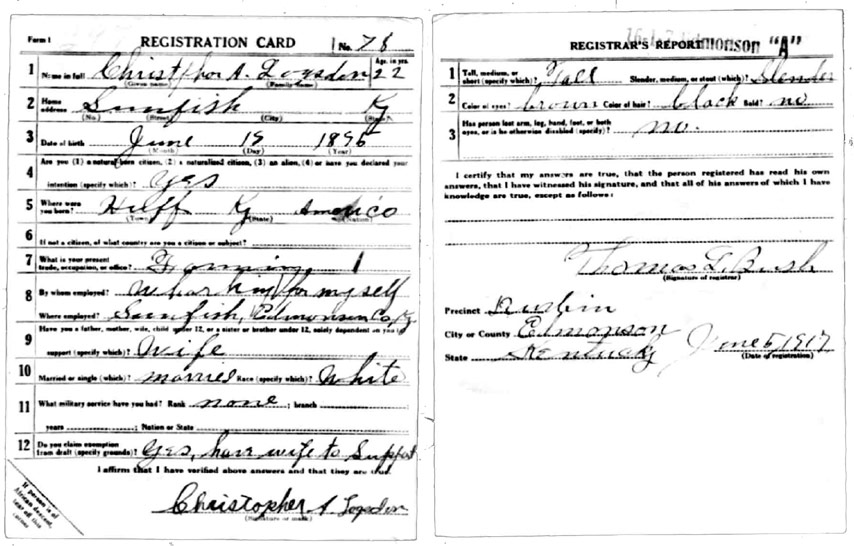 Form 1 REGISTRATION CARD No. 78
1 Name in full Christopher A. Logsdon Age, in yrs. 22
(Given name) (Family name)
2 Home address Sunfish Ky
(No.) (Street) (City) (State)
3 Date of birth June 19 1895
(Month) (Day) (Year)
4 Are you (1) a natural-born citizen, (2) a naturalized citizen, (3) an alien, (4) or have you declared your
intention (specify which)? yes
5 Where were you born? Huff Ky America
(Town) (State) (Nation)
6 If not a citizen, of what country are you a citizen or subject?
7 What is your present trade, occupation, or office? Farming
8 By whom employed? Working for myself
Where employed? Sunfish, Edmonson Co, Ky
9 Have you a father, mother, wife, child under 12, or a sister or brother under 12, solely dependent on you for
support (specify which)? Wife
10 Married or single (which)? married Race (specify which)? White
11 What military service have you had? Rank none ; branch
years ; Nation or State
12 Do you claim exemption from draft (specify grounds)? Yes, have wife to Support
I affirm that I have verified above answers and that they are true.
Christopher A. Logsdon
(Signature or mark)
If person is of
African descent,
tear off this
corner.
REGISTRAR'S REPORT Edmonson "A"
1 Tall, medium, or short (specify which)? Tall Slender, medium, or stout (which)? Slender
2 Color of eyes? brown Color of hair? black Bald? no
3 Has person lost arm, leg, hand, foot, or both eyes, or is he otherwise disabled (specify)? no.
I certify that my answers are true, that the person registered has read his own
answers, that I have witnessed his signature, and that all of his answers of which I have
knowledge are true, except as follows:
Thomas L. Bush
(Signature of registrar)
Precinct
City or County Edmonson
State Kentucky June 5, 1917
(Date of registration)